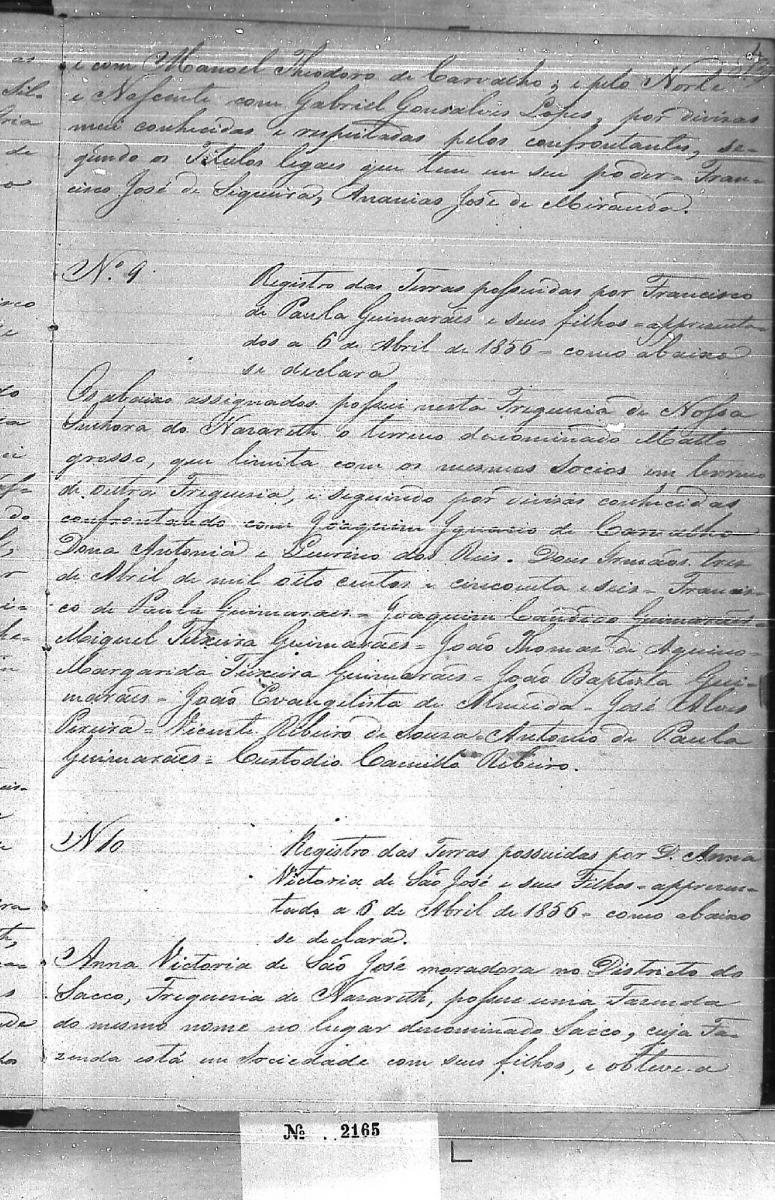 e com Manoel Theodoro de Carvalho; e pelo Norte
e Nascente com Gabriel Gonsalves Lopes, por divizas
mui conhecidas e respeitadas pelos confrontantes, se-
gundo os Titulos legaes que tem em seu poder = Fran-
cisco José de Siqueira, Ananias José de Miranda.
Nº 9.
Registro das Terras possuidas por Francisco
de Paula Guimarães e seus filhos = appresenta-
dos a 6 de Abril de 1856 = como abaixo
se declara
Os abaixo assignados possui nesta Freguesia de Nossa
Senhora do Nazareth o terreno denominado Matto
grosso, que limita com os mesmos Socios em terreno
de outra Freguesia, e seguindo por divizas conhecidas
confrontando com Joaquim Ignacio de Carvalho
Dona Antonia e Leurino dos Reis. Dous Irmãos tres
de Abril de mil oito centos e cincoenta e seis = Francis-
co de Paula Guimarães = Joaquim Cândido Guimarães =
Miguel Teixeira Guimarães = João Thomas de Aquino =
Margarida Teixeira Guimarães = João Baptista Gui-
marães = João Evangelista de Almeida = José Alves
Pereira = Vicente Ribeiro de Souza = Antonio de Paula
Guimarães = Custodio Camillo Ribeiro.
N 10
Registro das Terras possuidas por D. Anna
Victoria de São José e seus Filhos = appresen-
tado a 6 de Abril de 1856 = como abaixo
se declara.
Anna Victoria de São José moradora no Districto do
Sacco, Freguesia de Nazareth, possue uma Fazenda
do mesmo nome no lugar denominado Sacco, cuja Fa-
zenda está em Sociedade com seus filhos, e obteve-a
Nº 2165